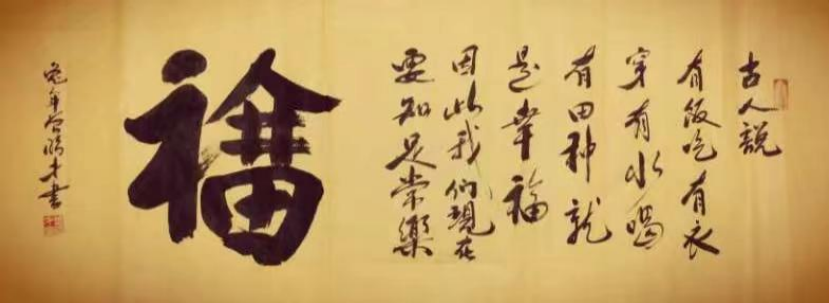 古人說
有飯吃有衣
穿有水喝
有田种就
是幸福
因此我们現在
要知足常樂
福
兔年 才書